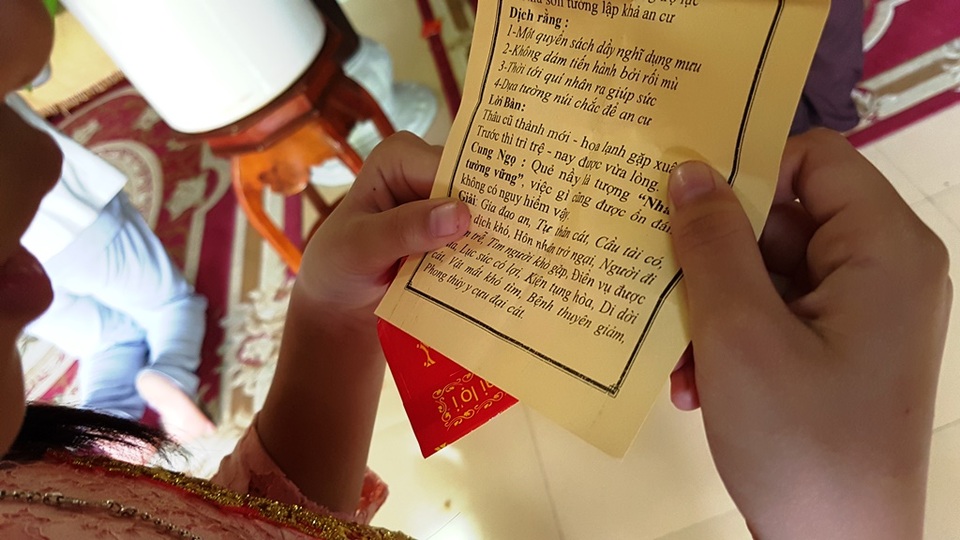 sơn tường lập khả an cư
Dịch rằng :
1-Một quyển sách đầy nghĩ dụng mưu
2-Không dám tiến hành bởi rối mù
3-Thời tới quí nhân ra giúp sức
4-Dựa tường núi chắc để an cư
Lời Bàn:
Thâu cũ thành mới - hoa lạnh gặp xuâ
Trước thì trì trệ - nay được vừa lòng.
Cung Ngọ : Quẻ nầy là tượng “Nhà
tường vững”, việc gì cũng được ổn
không có nguy hiểm vậy.
Giải: Gia đạo an, Tự thân cát, Cầu tài có
dịch khó, Hôn nhân trở ngại, Người đi
trễ, Tìm người khó gặp, Điền vụ được
Lục súc có lợi, Kiện tụng hòa, Di dời
cát, Vật mất khó tìm, Bệnh thuyên giảm,
Phong thủy y cựu đại cát.
lợi